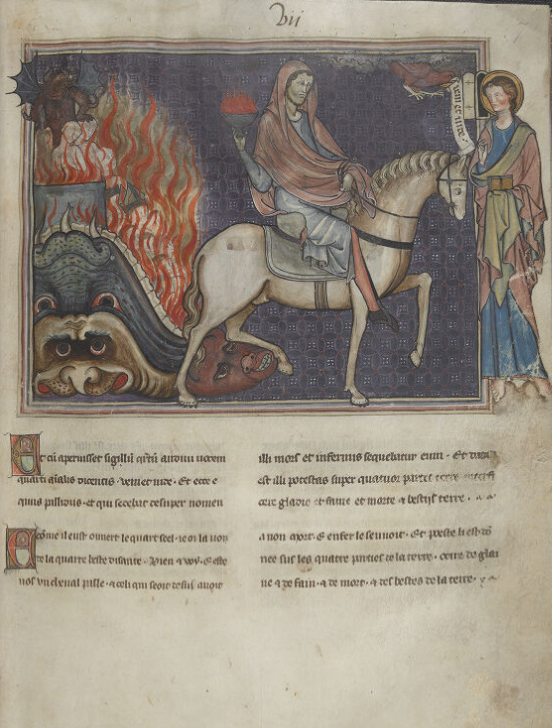 vij
veni et vide
Et cu aperuisset sigillu qrtu audiui uocem
quarti aialis dicentis. veni et uide. Et ecce e
quus pallidus. et qui sedebat desuper nomen
illi mors et infernus sequebatur eum. Et data
est illi potestas super quatuor partes terre interfi
cere gladio et fame et morte et bestijs terre.
come il eust ouuert le quart seel. ie oi la uois
de la quarte beste disante. Vien et voy. Et este
uos un cheual palle. et celi qui seoit desus auoit
a non mort. et enfer le seiuoit. Et poeste li est do
nee sus les quatre parties de la terre. ocirre de glai
ue et de fain. et de mort. et des bestes de la terre.